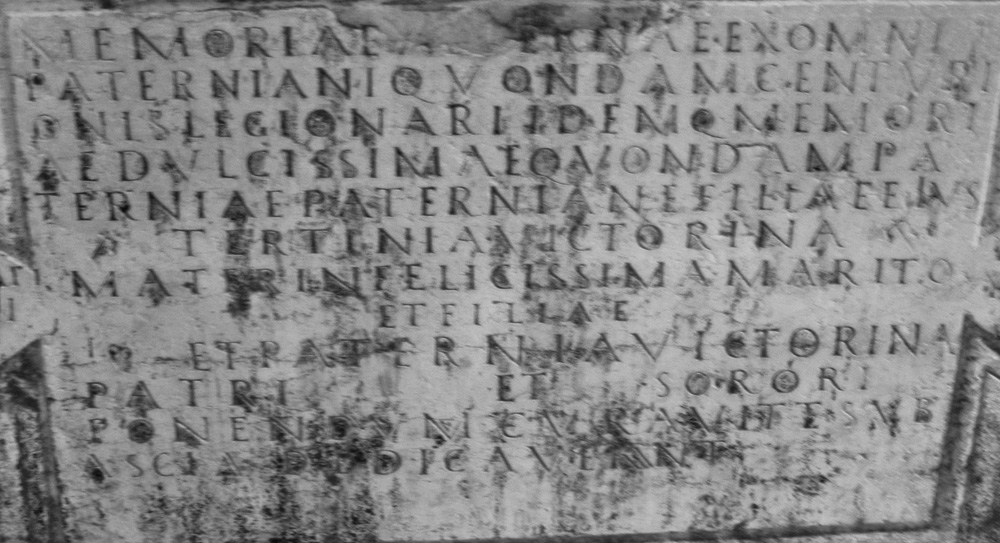 MEMORIAE AETERNAE EXOMNI
PATERNIANI QVONDAM CENTVRI
ONIS LEGIONARI IDEMQ MEMORI
AE DVLCISSIMAE QVONDAM PA
TERNIAE PATERNIANE FILIAE EIVS
TERTINIA VICTORINA
MATER INFELICISSIMA MARITO
ET FILIAE
ET PATERNIA VICTORINA
PATRI ET SORORI
PONENDVM CVRAVIT ET SVB
ASCIA DEDICAVERVNT